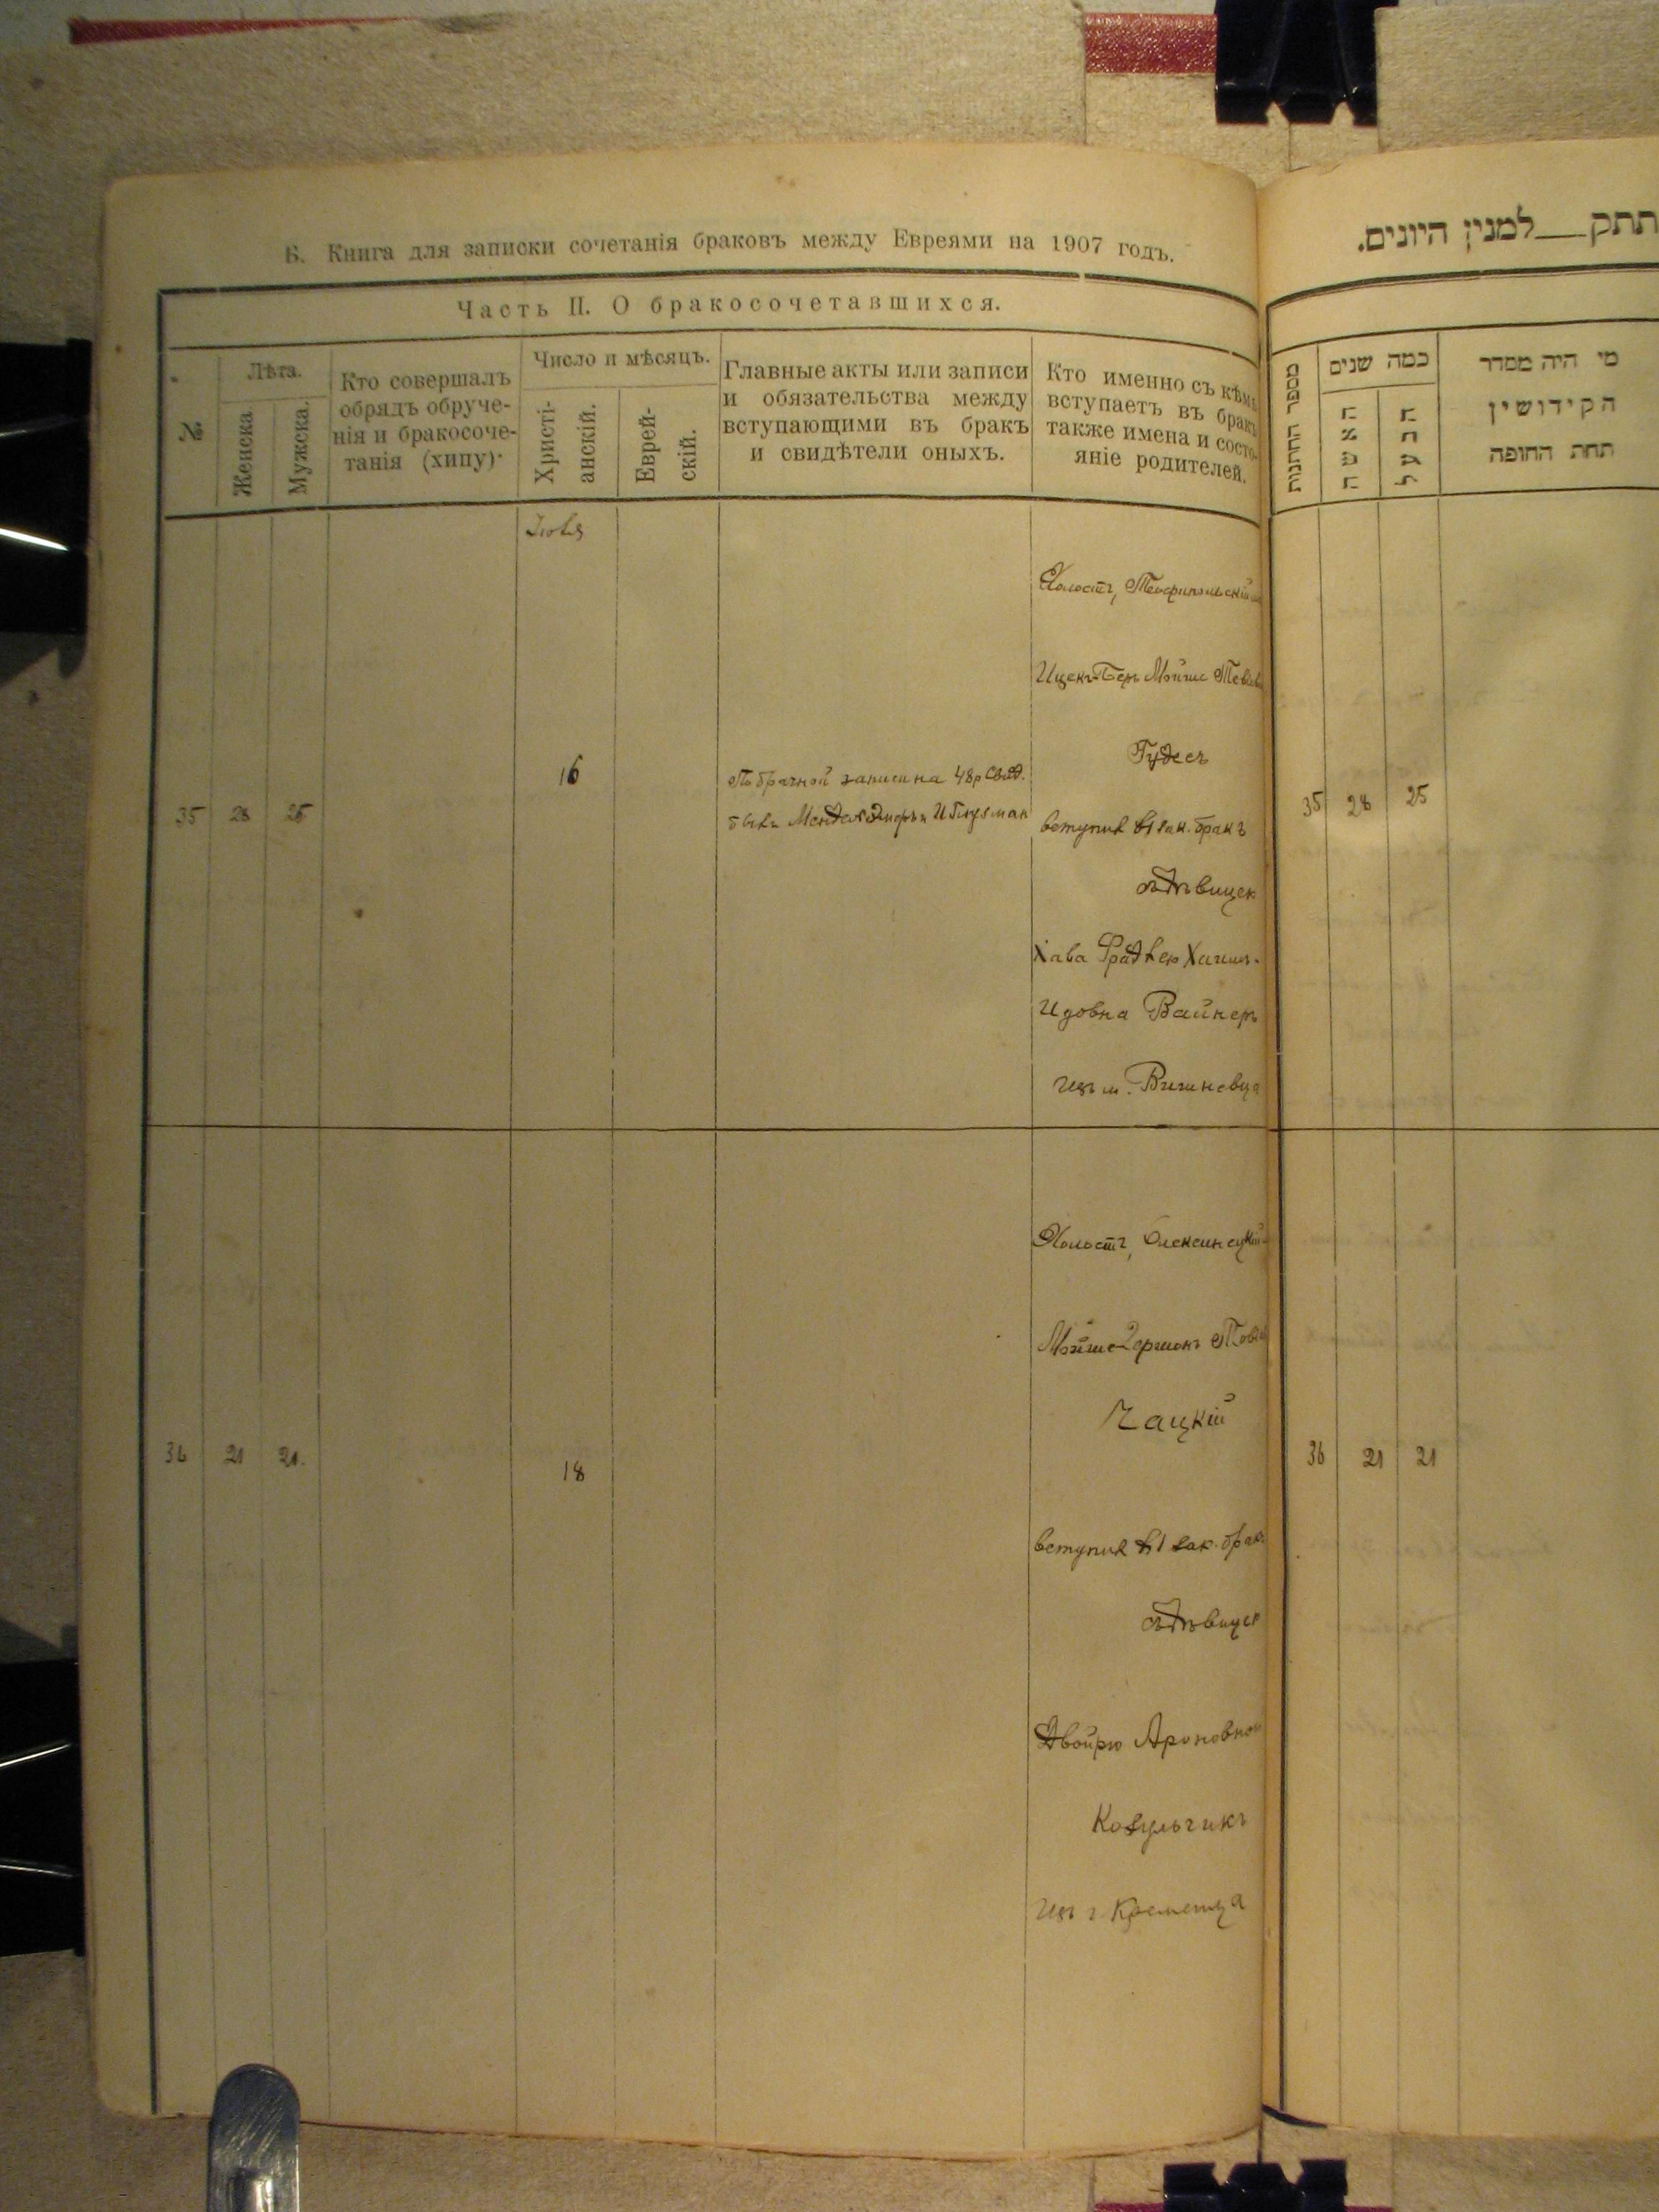 Б. Книга для записки сочетанія браковъ между Евреями на 1907 годъ.
Часть II. О бракосочетавшихся.
№
Лѣта.
Женска
Мужска.
Кто совершалъ
обрядъ обруче-
нія и бракосоче-
танія (хипу).
Число и мѣсяцъ.
Христі-
анскій.
Еврей-
скій.
Главные акты или записи
и обязательства между
вступающими въ бракъ
и свидѣтели оныхъ.
Кто именно съ кѣмъ
вступаетъ въ бракъ
также имена и состо-
яніе родителей.
35
28
25
16
По брачной записи на 48 р Свид.
были Мендель
Холостъ, Теофипольскій
Ицекъ-Беръ Мойше
Гудесъ
вступил в 1 зак. бракъ
съ дѣвицею
Хава Фрад
Вайнеръ
изъ м. Вишневца
36
21
21.
18
Холостъ, Олексинецкій
Мойше Гершонъ
Чацкій
вступил в 1 зак. брак
съ дѣвицею
Двойрю Ароновною
Козульчикъ
изъ г. Кременца
תתק למנין היונים.
מספר החתנות
כמה שנים
האשה
הבעל
מי היה מסדר
הקידושין
תחת החופה
35
28
25
36
21
21